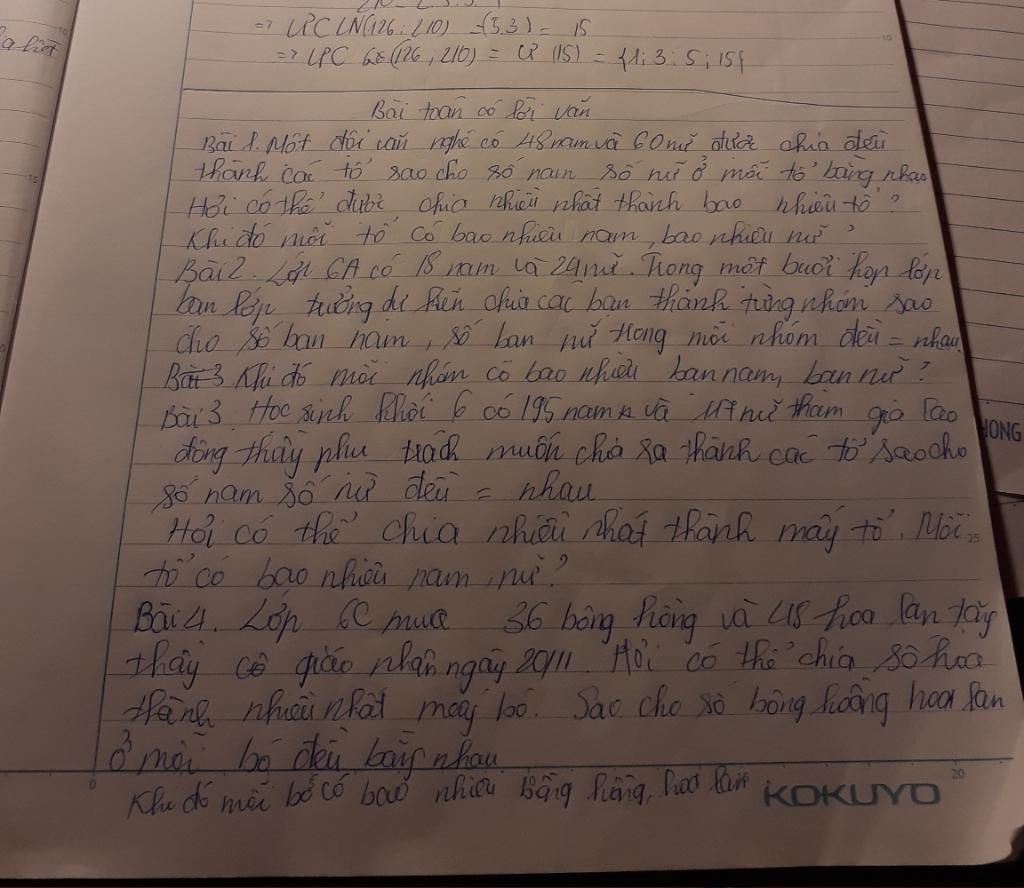 a hết
210 = 2.3.5.7
=> ƯCLN(126; 210) =(5.3) = 15
=> ƯC (126; 210) = Ư (15) = {1; 3; 5; 15}
Bài toán có lời văn
Bài 1. Một đội văn nghệ có 48 nam và 60 nữ được chia đều
thành các tổ sao cho số nam số nữ ở mỗi tổ bằng nhau
Hỏi có thể được chia nhiều nhất thành bao nhiêu tổ?
Khi đó mỗi tổ có bao nhiêu nam, bao nhiêu nữ?
Bài 2. Lớp 6A có 18 nam và 24 nữ. Trong một buổi họp lớp
bạn lớp trưởng dự kiến chia các bạn thành từng nhóm sao
cho số bạn nam, số bạn nữ trong mỗi nhóm đều = nhau.
Khi đó mỗi nhóm có bao nhiêu bạn nam, bạn nữ?
Bài 3. Học sinh khối 6 có 195 nam và 117 nữ tham gia lao
động thầy phụ trách muốn chia ra thành các tổ sao cho
số nam số nữ đều = nhau
Hỏi có thể chia nhiều nhất thành mấy tổ. Mỗi
tổ có bao nhiêu nam, nữ?
Bài 4. Lớp 6C mua 36 bông hồng và 48 hoa lan tặng
thầy cô giáo nhận ngày 20/11. Hỏi có thể chia số hoa
thành nhiều nhất mấy bó. Sao cho số bông hồng hoa lan
ở mỗi bó đều bằng nhau
Khi đó mỗi bó có bao nhiêu bông hồng, hoa lan
KOKUYO
HONG